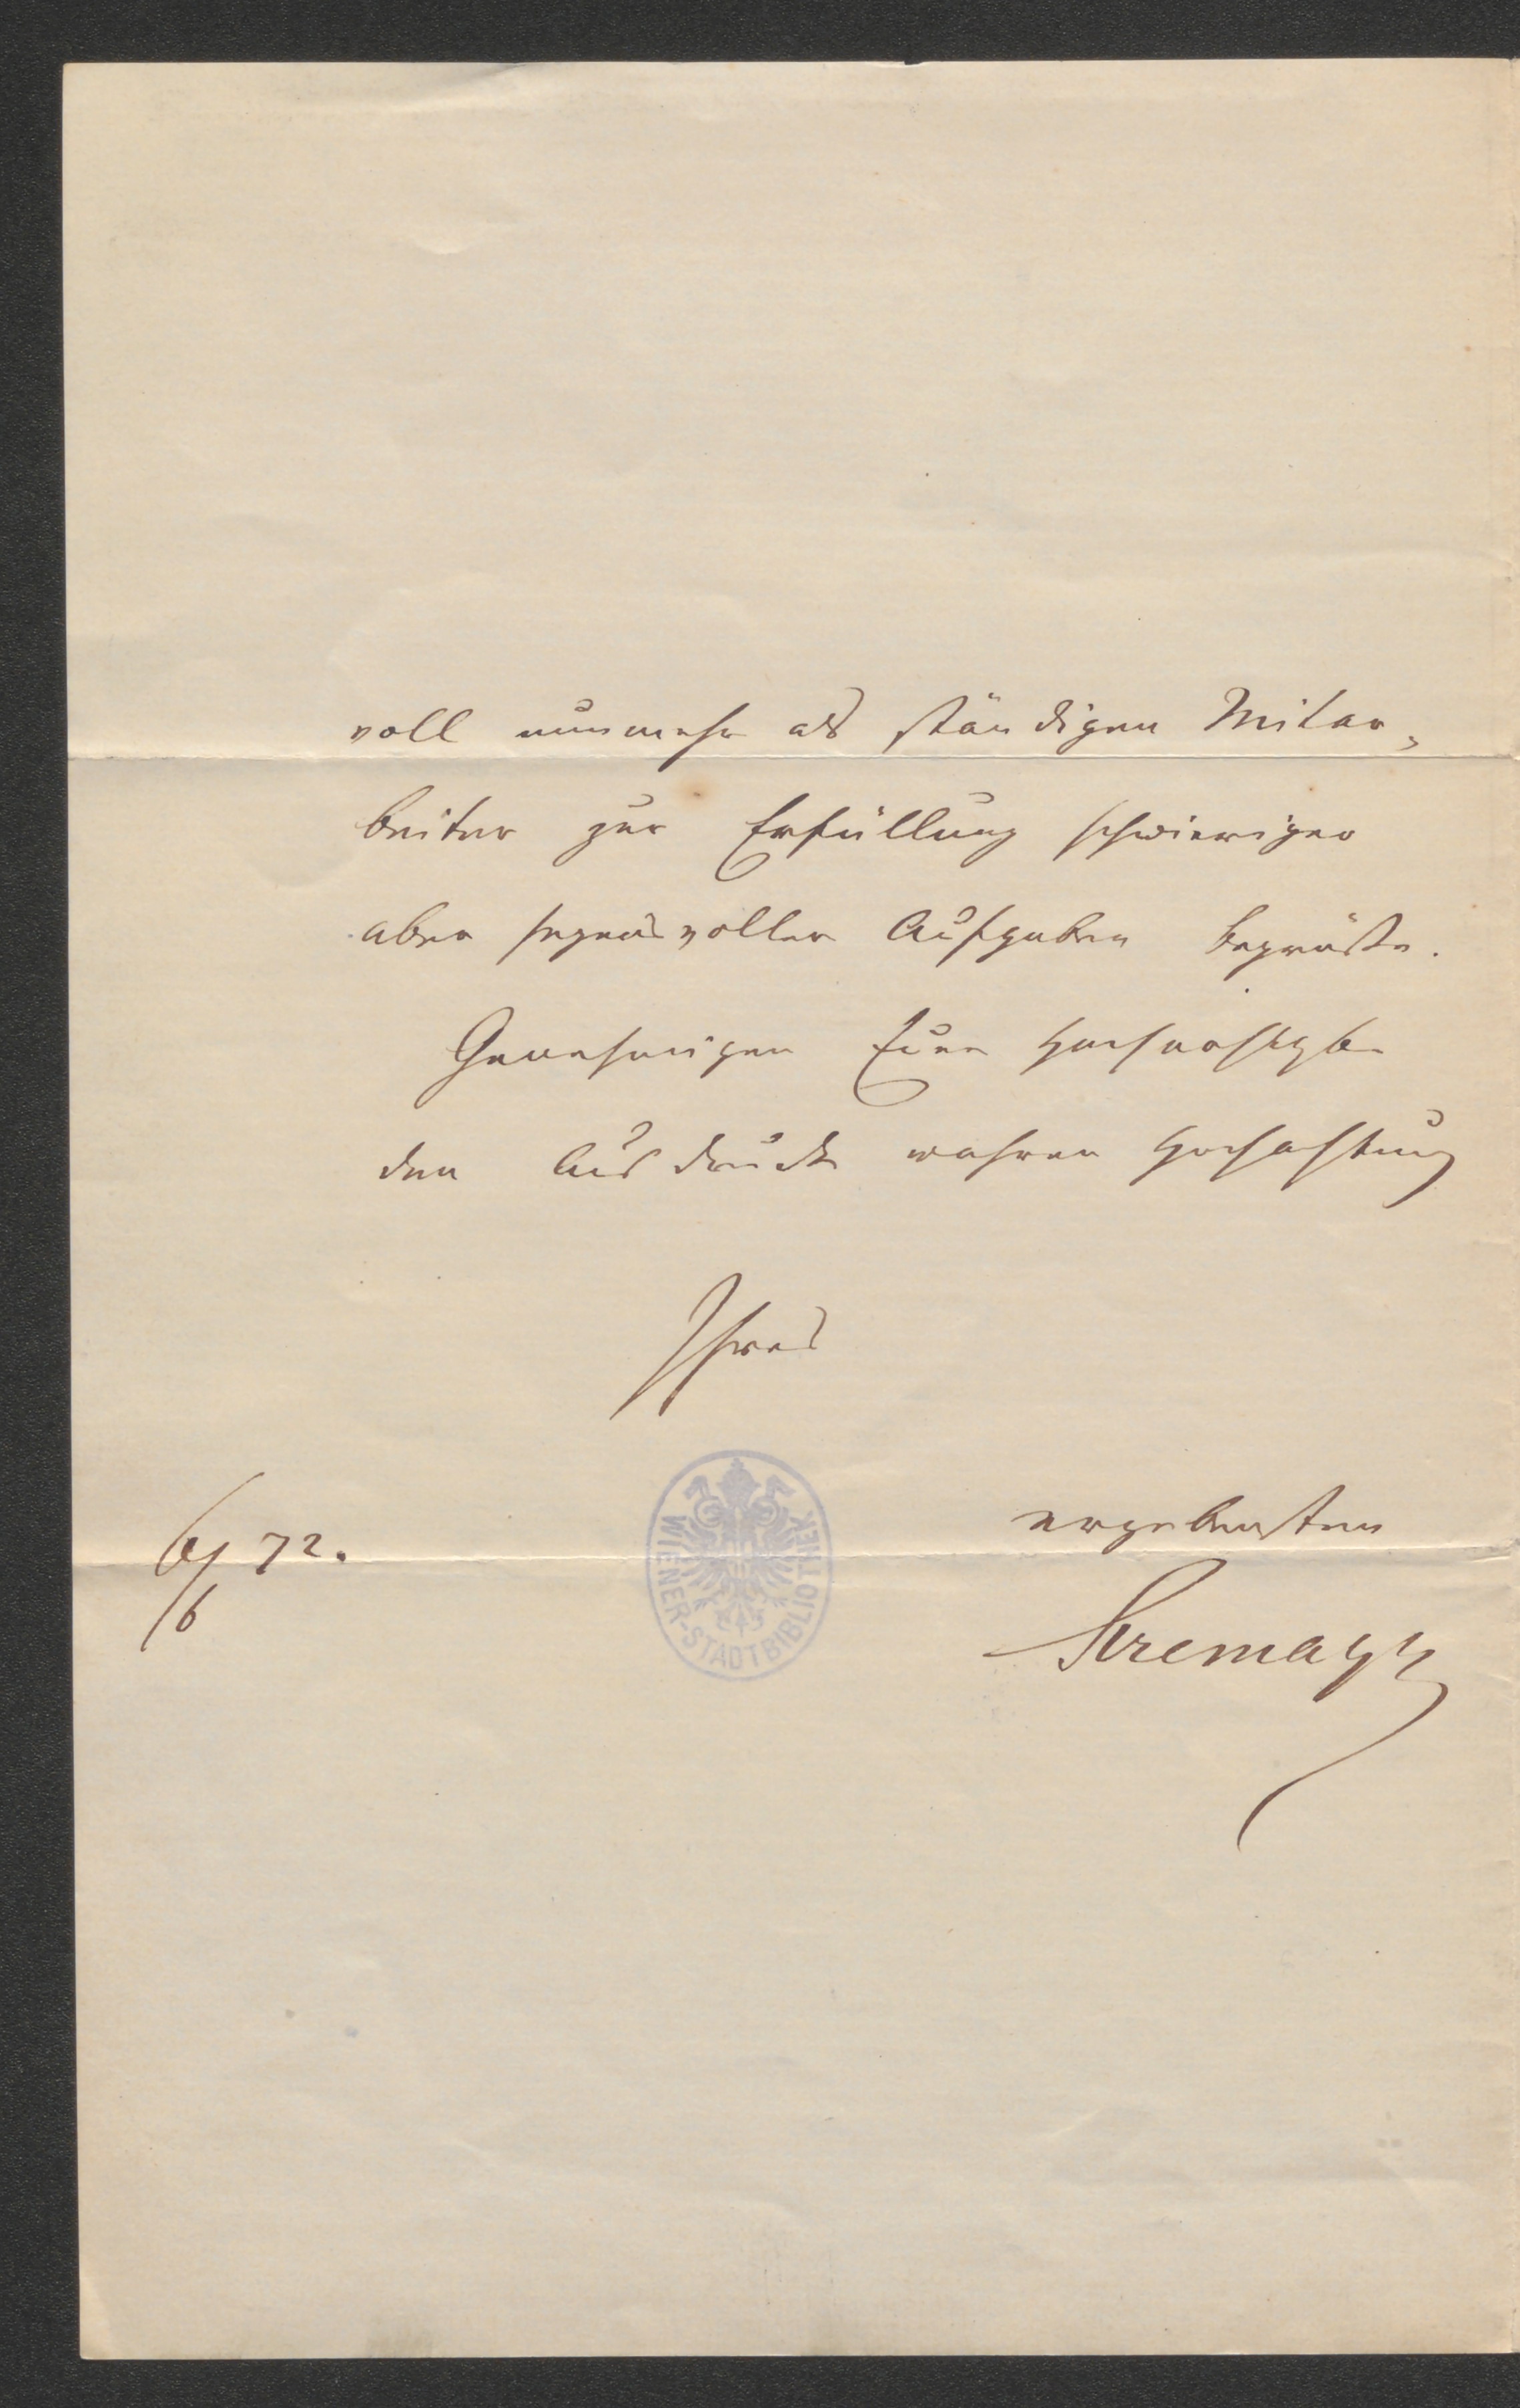 voll nunmehr als ständigen Mitar-
beiter zur Erfüllung schwieriger
aber segensvoller Aufgaben begrüße.
Genehmigen Euer
den Ausdruck wahrer Hochachtung
Ihres
6/ 72.
/6
ergebensten
Stremayr
WIENER-STADTBIBLIOTHEK